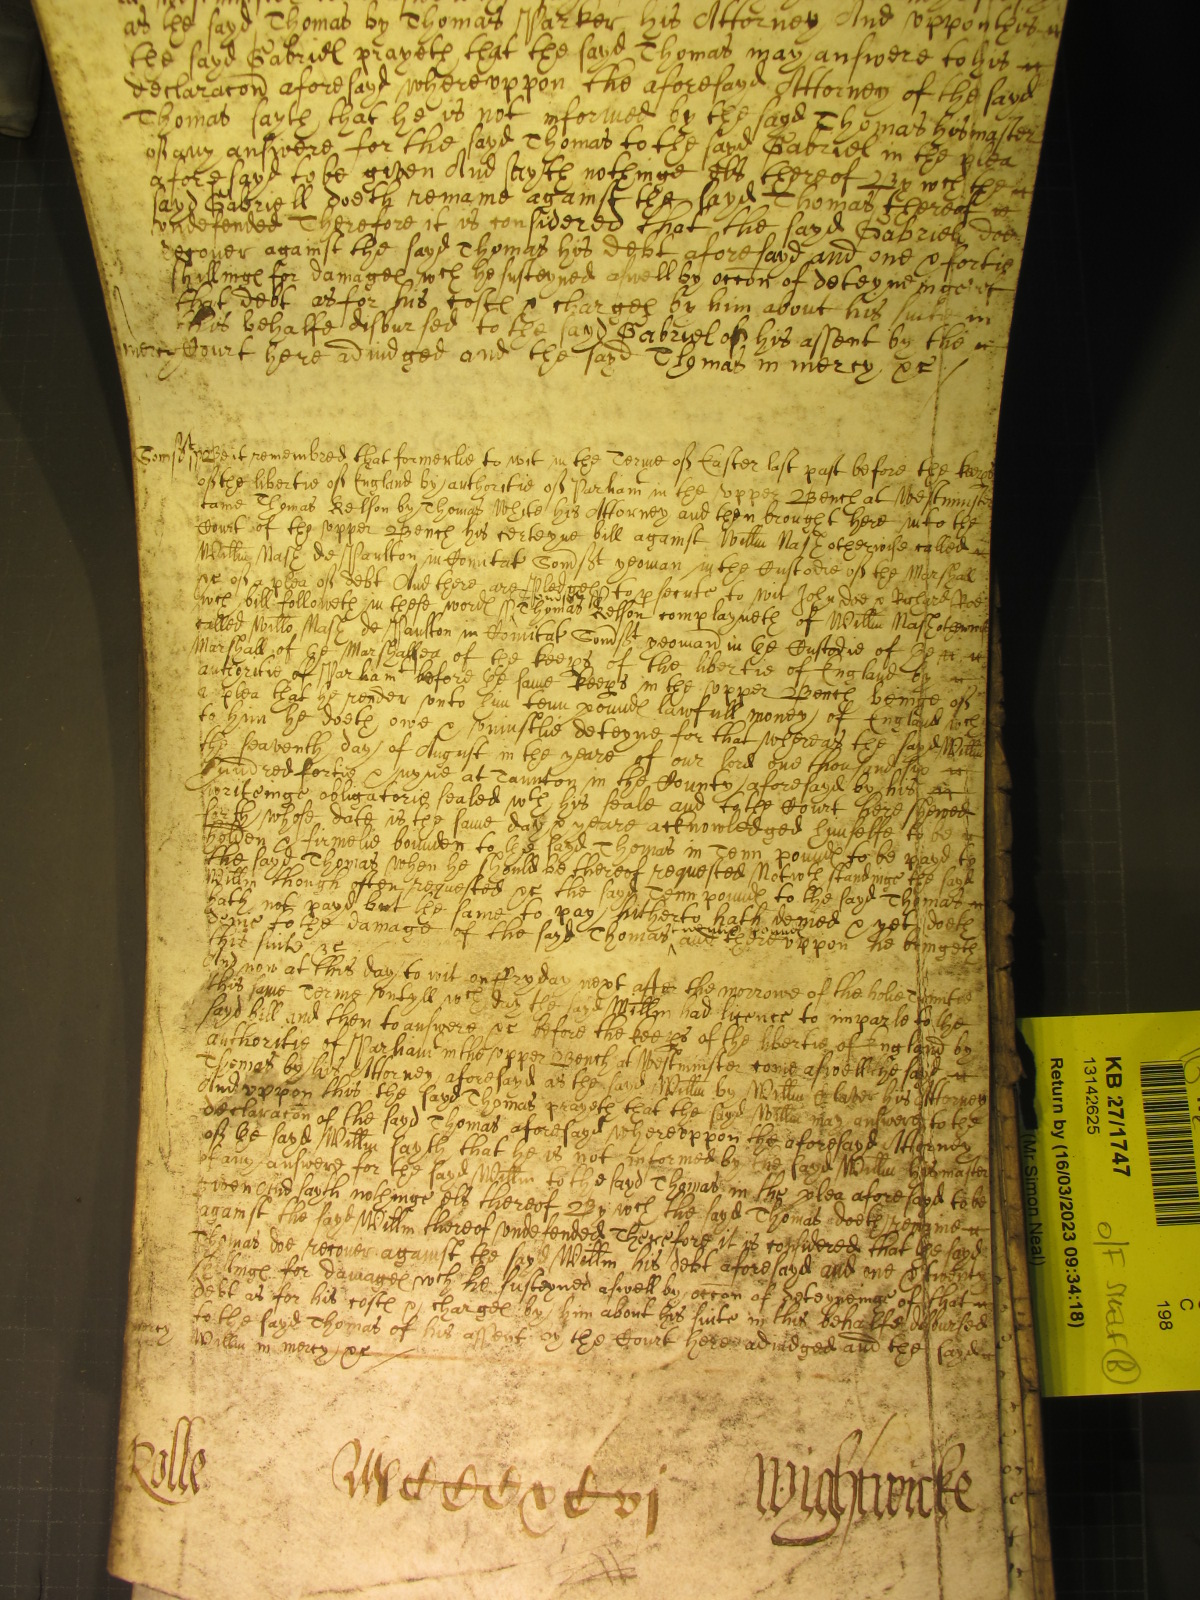 as the sayd Thomas by Thomas Parker his Attorney And uppon this
the sayd Gabriel prayeth that the sayd Thomas may answere to his
declaracon aforesayd whereuppon the aforesayd Attorney of the sayd
Thomas sayth that he is not informed by the sayd Thomas his master
of any answere for the sayd Thomas to the sayd Gabriel in the plea
aforesayd to be given And sayth nothinge els thereof By wch the
sayd Gabriell doeth remaine against the sayd Thomas thereof
undefended Therefore it is considered that the sayd Gabriel doe
recover against the sayd Thomas his debt aforesayd and one & fortie
shillinges for damages wch he susteyned aswell by occon of deteyninge
that debt as for his costes & charges by him about his suite in
this behalfe disbursed to the sayd Gabriel of his assent by the
mercy Court here adiudged and the sayd Thomas in mercy &c
Somst ss Be it remembred that formerlie to wit in the Terme of Easter last past before the keeps
of the libertie of England by authoritie of Parliam in the upper Bench at Westminster
came Thomas Kelson by Thomas White his Attorney and then brought here into the
Court of the upper Bench his certeyne bill against Willm Nash otherwise called
Willm Nash de Paulton in Comitat Somst yeoman in the Custodie of the Marshall
&c of a plea of debt And there are pledges to psecute to wit John Doe & Richard Roe
wch bill followeth in these wordes ss Thomas Kelson complayneth of Willm Nash otherwise
called Willm Nash de Paulton in Comitat Somst yeoman in the Custodie of the
Marshall of the Marshallsea of the keeps of the libertie of England by
authoritie of Parliam before the same keeps in the upper Bench beinge of
a plea that he render unto him tenn poundes lawfull money of England wch
to him he doeth owe & uniustlie deteyne for that whereas the sayd Willm
the seaventh day of August in the yeare of our lord one thousand six
hundred fortie & nyne at Taunton in the County aforesayd by his
writeinge obligatorie sealed wth his seale and to the Court here shewed
forth whose date is the same day & yeare acknowledged himselfe to be
holden & firmelie bounden to the sayd Thomas in Tenn poundes to be payd to
the sayd Thomas when he should be thereof requested Notwth standinge the sayd
Willm though often requested &c the sayd Tenn poundes to the sayd Thomas
hath not payd but the same to pay hitherto hath denied & yet doeth
denie to the damage of the sayd Thomas and thereuppon he bringeth
this suite &c
And now at this day to wit on ffryday next after the morrowe of the holie Trinitie
this same Terme untyll wch day the sayd Willm had licence to imparle to the
sayd bill and then to answere &c before the keeps of the libertie of England by
authoritie of Parliam in the upper Bench at Westminster come aswell the sayd
Thomas by his Attorney aforesayd as the sayd Willm by Willm his Attorney
And uppon this the sayd Thomas prayeth that the sayd Willm may answere to the
declaracon of the sayd Thomas aforesayd whereuppon the aforesayd Attorney
of the sayd Willm sayth that he is not informed by the sayd Willm his master
of any answere for the sayd Willm to the sayd Thomas in the plea aforesayd to be
given And sayth nothinge els thereof By wch the sayd Thomas doeth remaine
against the sayd Willm thereof undefended Therefore it is considered that the sayd
Thomas doe recover against the sayd Willm his debt aforesayd and one & twenty
shillinges for damages wch he susteyned aswell by occon of deteyninge of that
debt as for his costes & charges by him about his suite in this behalfe disbursed
mercy to the sayd Thomas of his assent by the Court here adiudged and the sayd
Willm in mercy &c
Rolle MCCCCxCvj Wightwicke
C 198
KB 27/1747
13142625
Return by (16/03/2023 09:34:18)
(Mr Simon Neal)